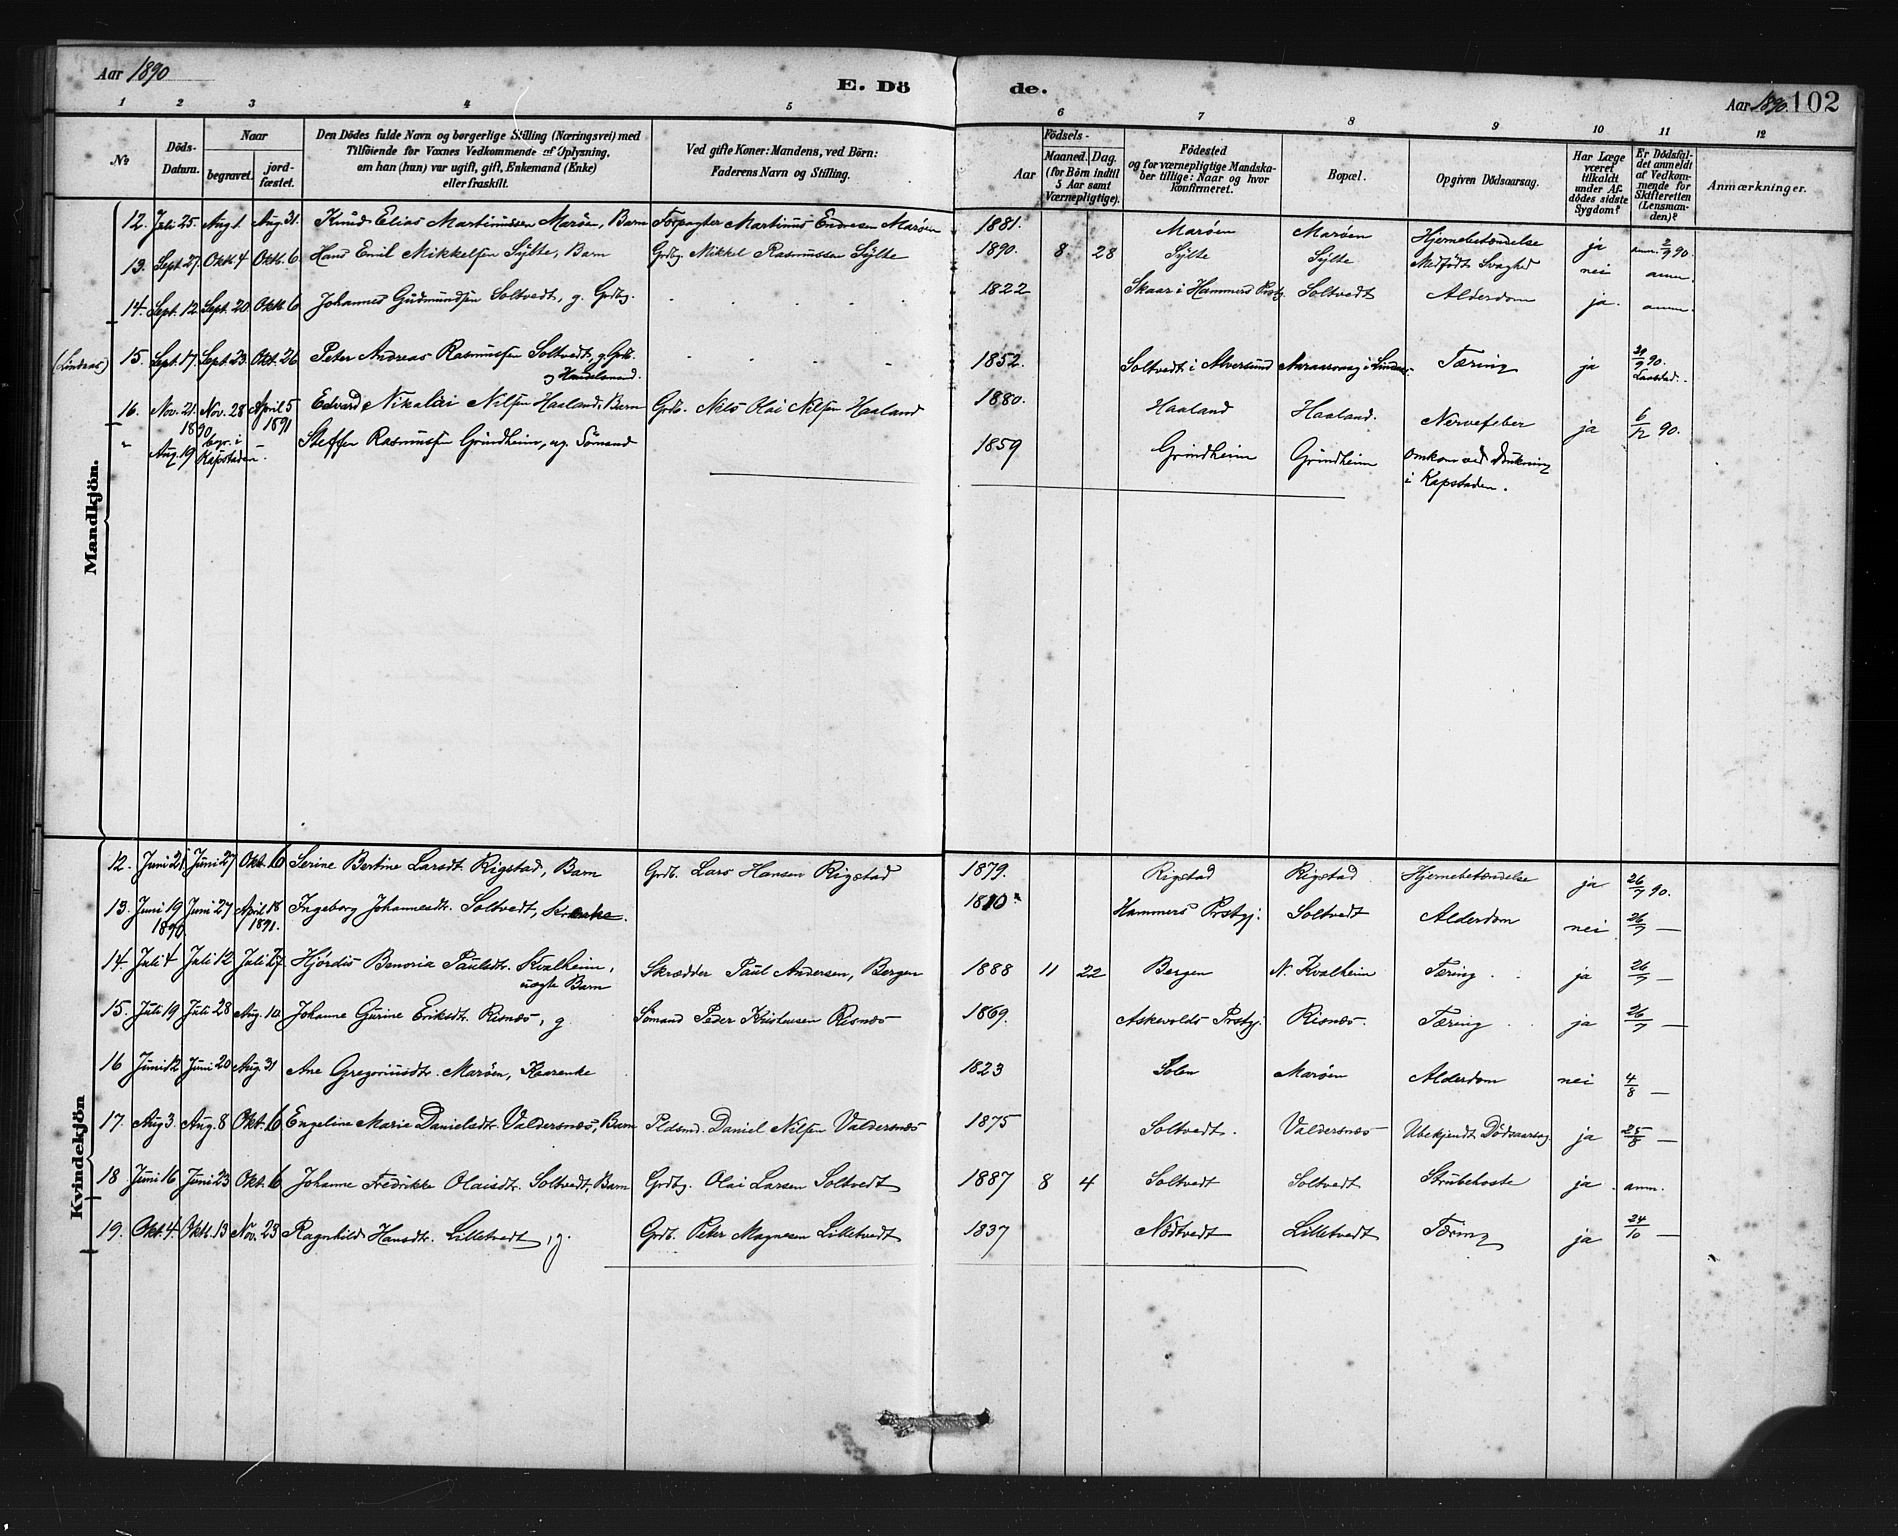 Aar 1890
E. Dö
de.
Aar 1890. 102
1 2 3 4 5 6 7 8 9 10 11 12
No
Döds-Datum.
Naar
begravet.
jord-fæstet.
Den Dödes fulde Navn og borgerlige Stilling (Næringsvei) med
Tilföiende for Voxnes Vedkommende af Oplysning,
om han (hun) var ugift, gift, Enkemand (Enke)
eller fraskilt.
Ved gifte Koner: Mandens, ved Börn:
Faderens Navn og Stilling.
Födsels-
Aar
Maaned. Dag.
(for Börn indtil
5 Aar samt
Værnepligtige).
Födested
og for værnepligtige Mandska-
ber tillige: Naar og hvor
konfirmeret.
Bopæl.
Opgiven Dödsaarsag.
Har Læge
været
tilkaldt
under Af-
dödes sidste
Sygdom?
Er Dödsfal-
det anmeldt
af Vedkom-
mende for
Skifteretten
(Lensman-
den)?
Anmærkninger.
Mandkjön.
12. Juli 25. Aug 1. Aug. 31. Knud Elias Martinussen Marøen, Barn Forpagter Martinus Endresen Marøen 1881. Marøen Marøen Hjernebetændelse ja anm. 2/9 90.
13. Sept 27. Okt. 4 Okt. 6 Hans Emil Mikkelsen Sylte, Barn Grdbg. Mikkel Rasmussen Sylte 1890. 8 28 Sylte Sylte Medfödt Svaghed nei anm.
14. Sept. 12. Sept. 20 Okt. 6 Johannes Gudmundsen Soltvedt, g. Grdbg. 1822 Skaar i Hammers Prstg. Soltvedt Alderdom ja. anm.
(Lindaas) 15. Sept. 17. Sept. 23. Okt. 26 Peter Andreas Rasmussen Soltvedt, g. Grdb.
og Handelsmand. 1852. Soltvedt i Alversund i Lindaas. Tæring ja 9 90.
16. Nov. 21. Nov. 28 April 5 1891 Edvard Nikolai Nilsen Haaland, Barn Grdb. Nils Olai Nilsen Haaland 1880. Haaland Haaland. Nervefeber ja 6/12 90.
" 1890 Aug. 19 begr. i Kapstaden - Steffen Rasmussen Grindheim, ug. Sömand 1859 Grindheim Grindheim Omkom ved Drukning
i Kapstaden.
Kvindekjön
12. Juni 21. Juni 27 Okt. 6 Serine Bertine Larsdt. Rigstad, Barn Grdb. Lars Hansen Rigstad 1879. Rigstad Rigstad Hjernebetændelse ja 26/7 90.
13. Juni 19 1890. Juni 27 April 18 1891. Ingeborg Johannesdt. Soltvedt, 1810 Hammers Prstgj. Soltvedt Alderdom nei 26/7 —
14. Juli 4 Juli 12 Juli 27. Hjördis Benoria Paulsdt. Kvalheim,
uægte Barn Skrædder Paul Andersen, Bergen 1888 11 22 Bergen N. Kvalheim Tæring ja 26/7 —
15. Juli 19 Juli 28 Aug. 10 Johanne Gurine Eriksdt. Risnæs, g Sömand Peder Kristensen Risnæs 1869. Askevolds Prstgj. Risnæs. Tæring ja 26/7 —
16 Juni 12 Juni 20 Aug. 31 Ane Gregoriusdtr. Marøen, Kaarenke 1823 Marøen Alderdom nei 4/8 —
17. Aug 3. Aug. 8 Okt. 6 Engeline Marie Danielsdt. Valdersnæs, Barn Pldsmd. Daniel Nilsen Valdersnæs 1875 Soltvedt. Valdersnæs Ubekjendt Dödsaarsag ja 25/8 —
18 Juni 16 Juni 23 Okt. 6 Johanne Fredrikke Olaisdtr. Soltvedt, Barn Grdbg. Olai Larsen Soltvedt 1887 8 4 Soltvedt Soltvedt Strubehoste ja anm.
19. Okt. 4. Okt. 13 Nov. 23 Ragnhild Hansdtr. Lilletvedt, g. Grdb. Peter Magnesen Lilletvedt 1837 Nödtvedt Lilletvedt Tæring ja 24/10 —